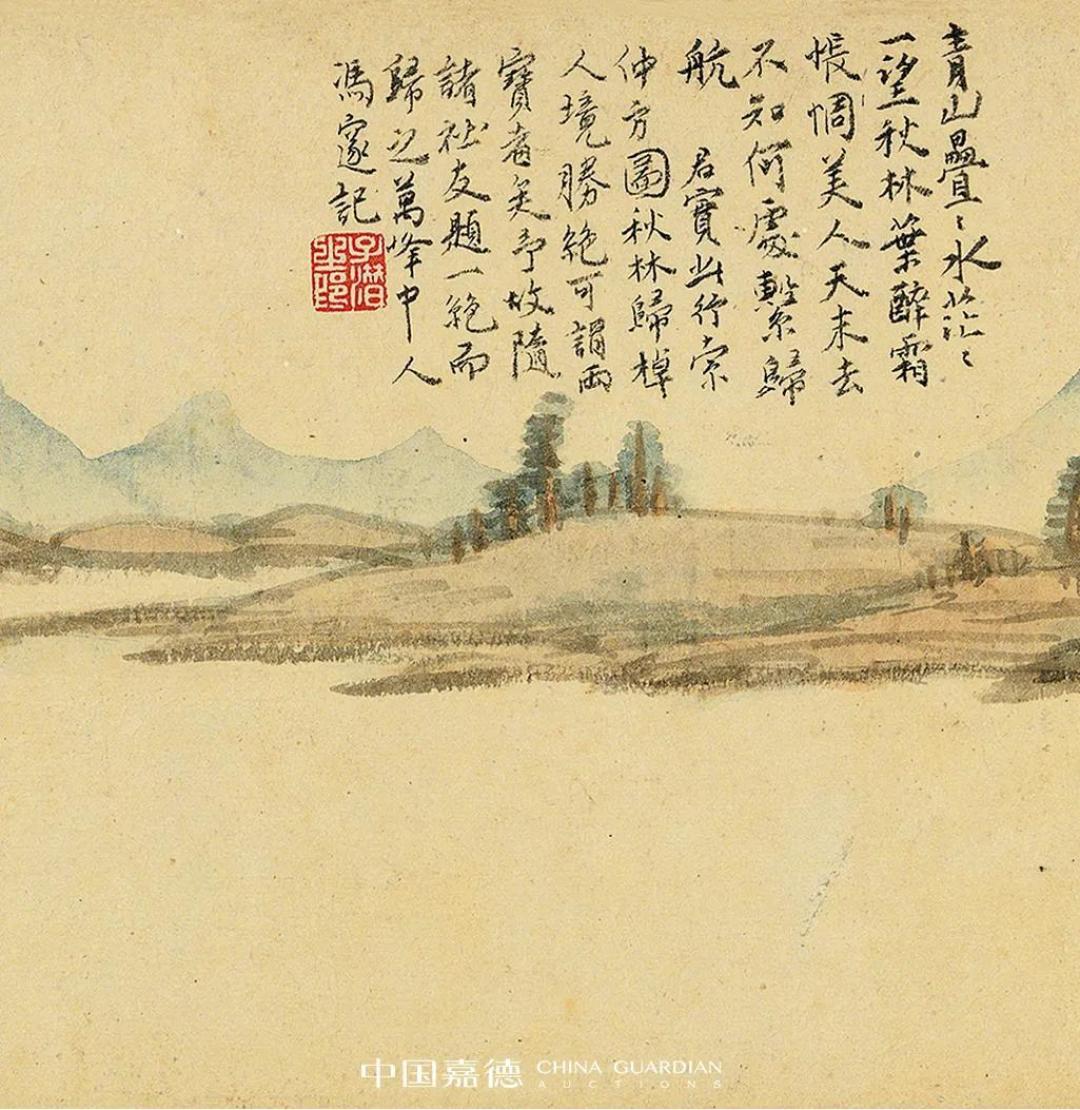 青山疊〻水茫〻
一望秋林葉醉霜
悵惆美人天末去
不知何處繫歸
航 君實此行索
仲方圖秋林歸棹
人境勝絕可謂兩
寶者矣予故隨
諸社友題一絕而
歸之萬峰中人
馮邃記
子潛
中国嘉德 CHINA GUARDIAN
AUCTIONS